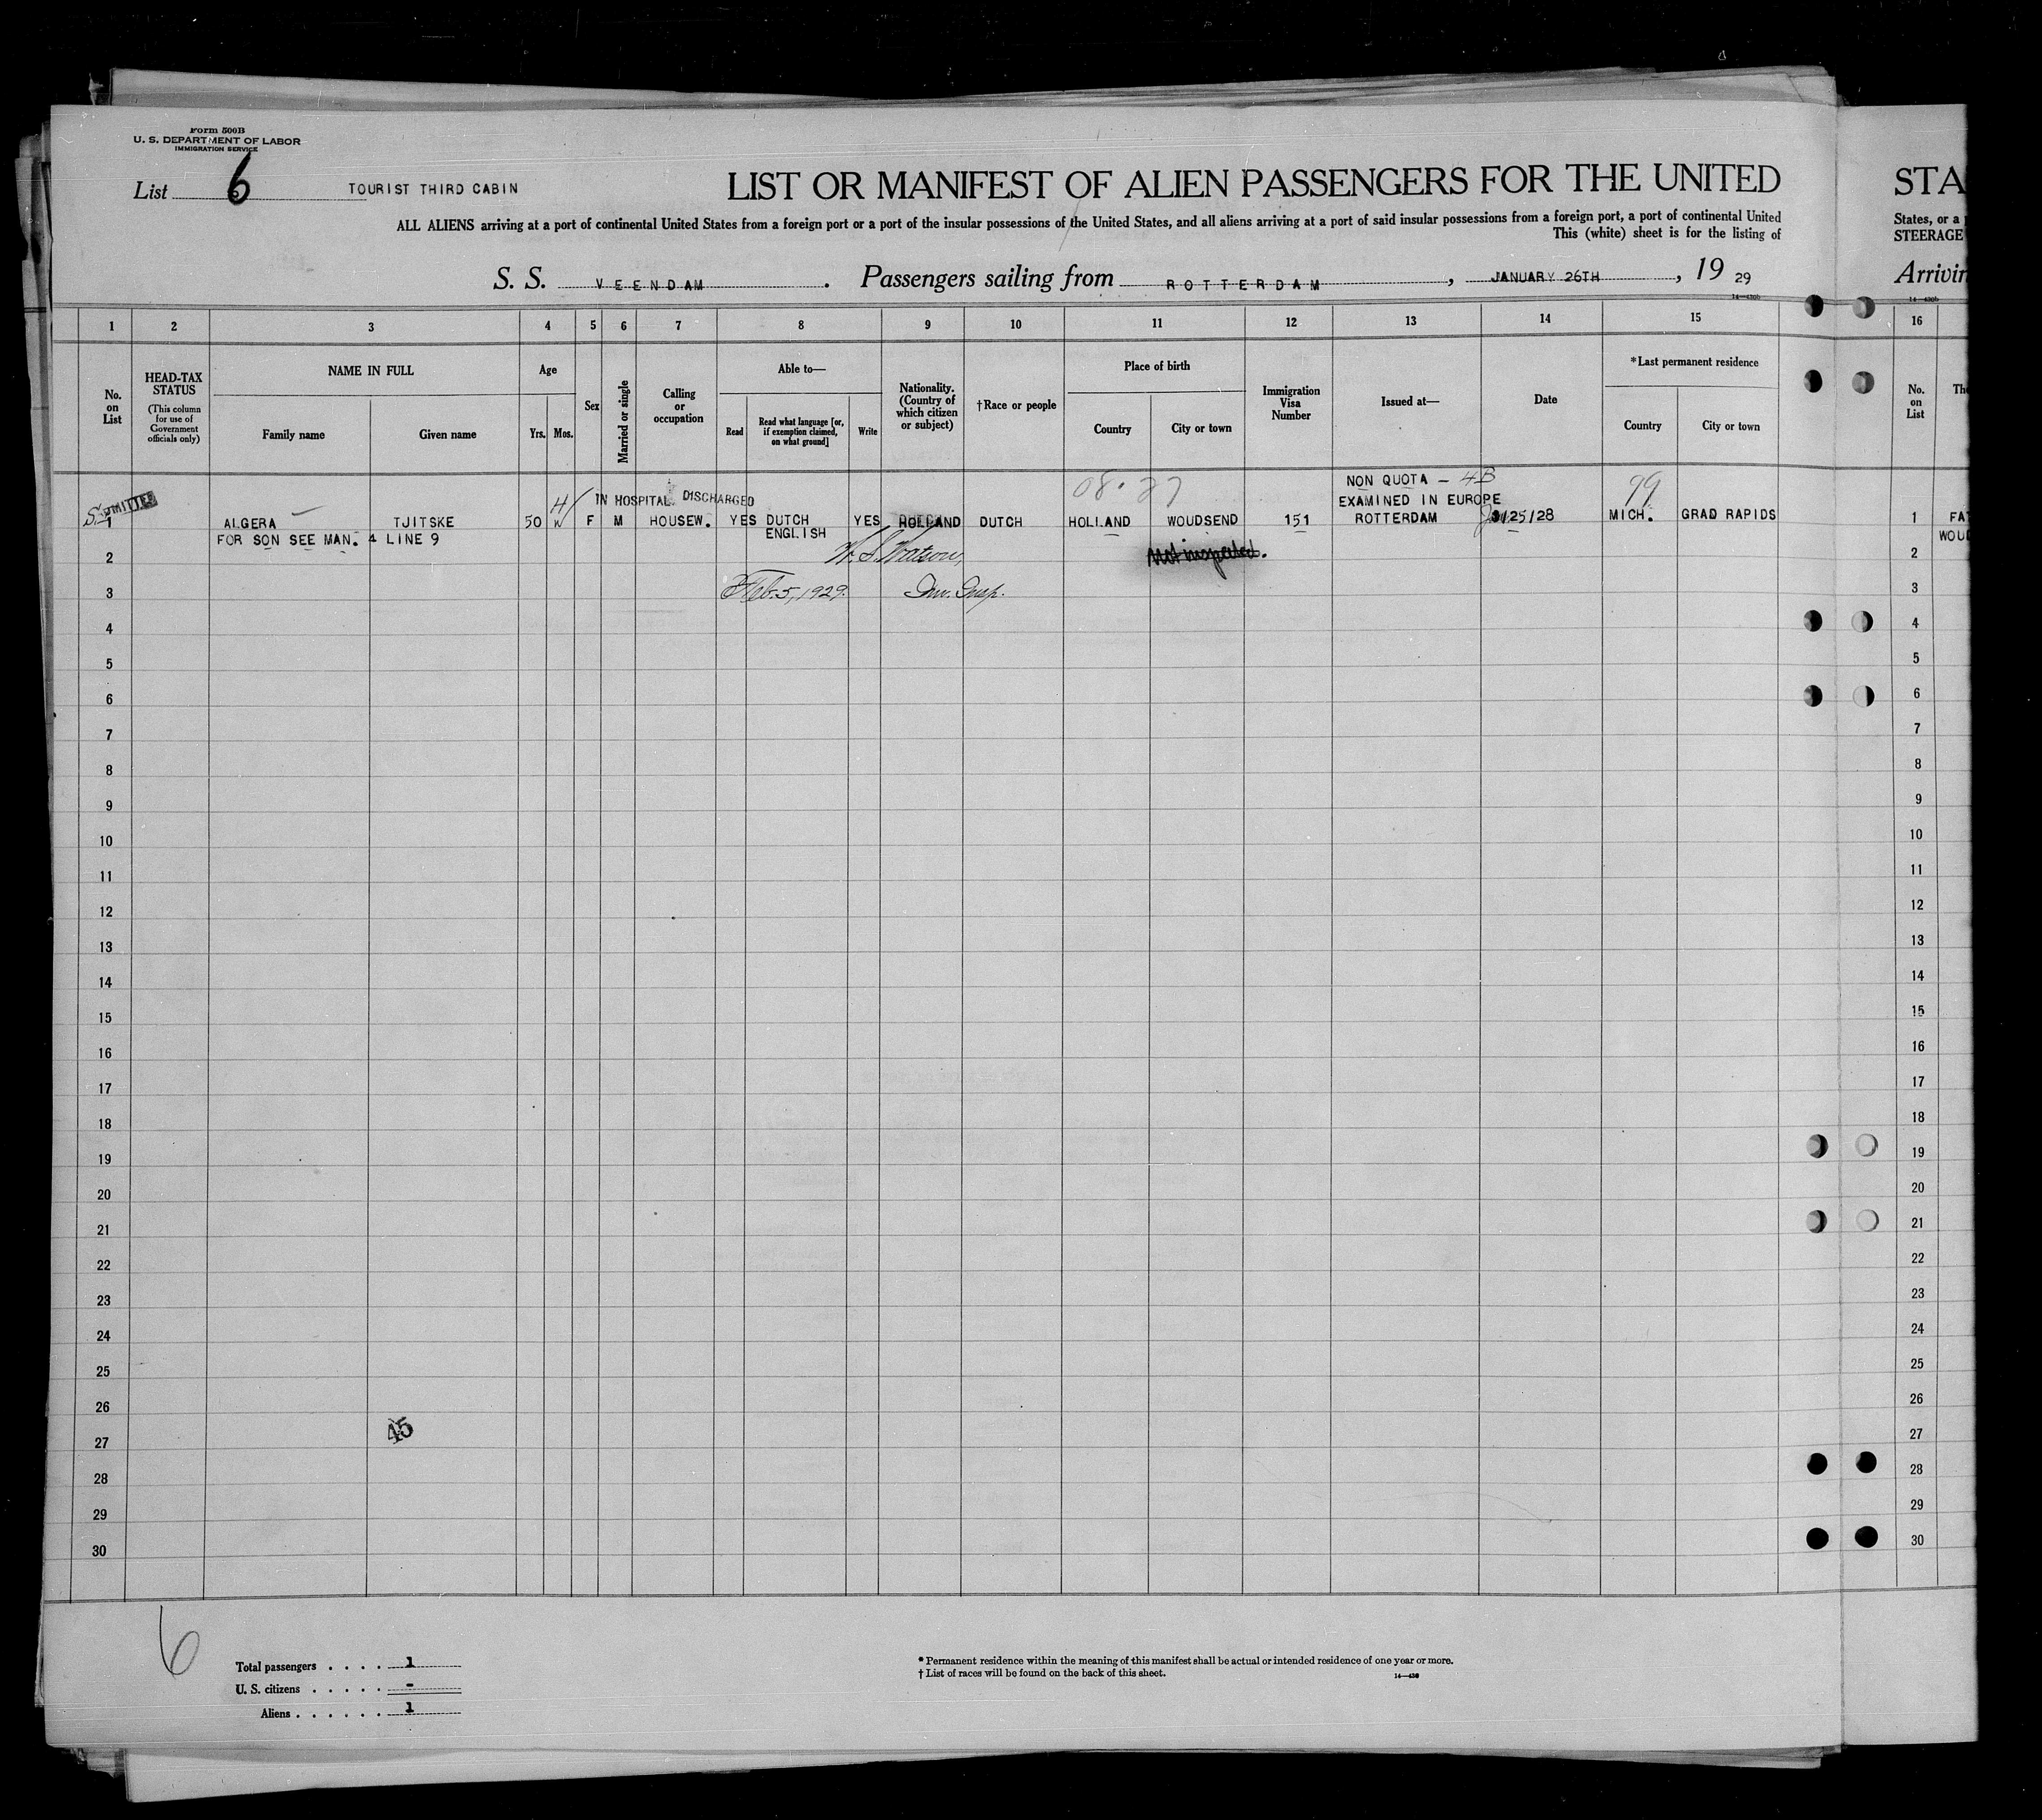 Form 500B
U. S. DEPARTMENT OF LABOR
IMMIGRATION SERVICE
List 6 TOURIST THIRD CABIN
LIST OR MANIFEST OF ALIEN PASSENGERS FOR THE UNITED
ALL ALIENS arriving at a port of continental United States from a foreign port or a port of the insular possessions of the United States, and all aliens arriving at a port of said insular possessions from a foreign port, a port of continental United
This (white) sheet is for the listing of
S. S. VEENDAM . Passengers sailing from ROTTERDAM , JANUARY 26TH , 19 29
14—430b
STA
States, or a
STEERAGE
Arrivin
14—430b
1 2 3 4 5 6 7 8 9 10 11 12 13 14 15 16
No. on List
HEAD-TAX STATUS
(This column for use of Government officials only)
NAME IN FULL
Family name Given name
Age
Yrs. Mos.
Sex
Married or single
Calling or occupation
Able to—
Read
Read what language [or, if exemption claimed, on what ground]
Write
Nationality. (Country of which citizen or subject)
†Race or people
Place of birth
Country City or town
Immigration Visa Number
Issued at—
Date
*Last permanent residence
Country City or town
No. on List
NON QUOTA – 4B
IN HOSPITAL DISCHARGED
EXAMINED IN EUROPE
99
1 ALGERA TJITSKE 50 F M HOUSEW. YES DUTCH YES HOLLAND DUTCH HOLLAND WOUDSEND 151 ROTTERDAM 25/28 MICH. GRAD RAPIDS 1
FOR SON SEE MAN. 4 LINE 9 ENGLISH
2 W. S. Watson, Not inspected. 2
3 Feb. 5, 1929. Imm. Insp. 3
4 4
5 5
6 6
7 7
8 8
9 9
10 10
11 11
12 12
13 13
14 14
15 15
16 16
17 17
18 18
19 19
20 20
21 21
22 22
23 23
24 24
25 25
26 26
45
27 27
28 28
29 29
30 30
6
Total passengers . . . . 1
U. S. citizens . . . . . -
Aliens . . . . . . 1
* Permanent residence within the meaning of this manifest shall be actual or intended residence of one year or more.
† List of races will be found on the back of this sheet.
14—430